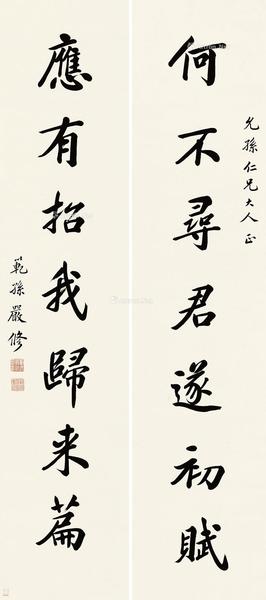 允孫仁兄大人正
何不尋君遂初賦
應有招我歸来篇
範孫嚴修